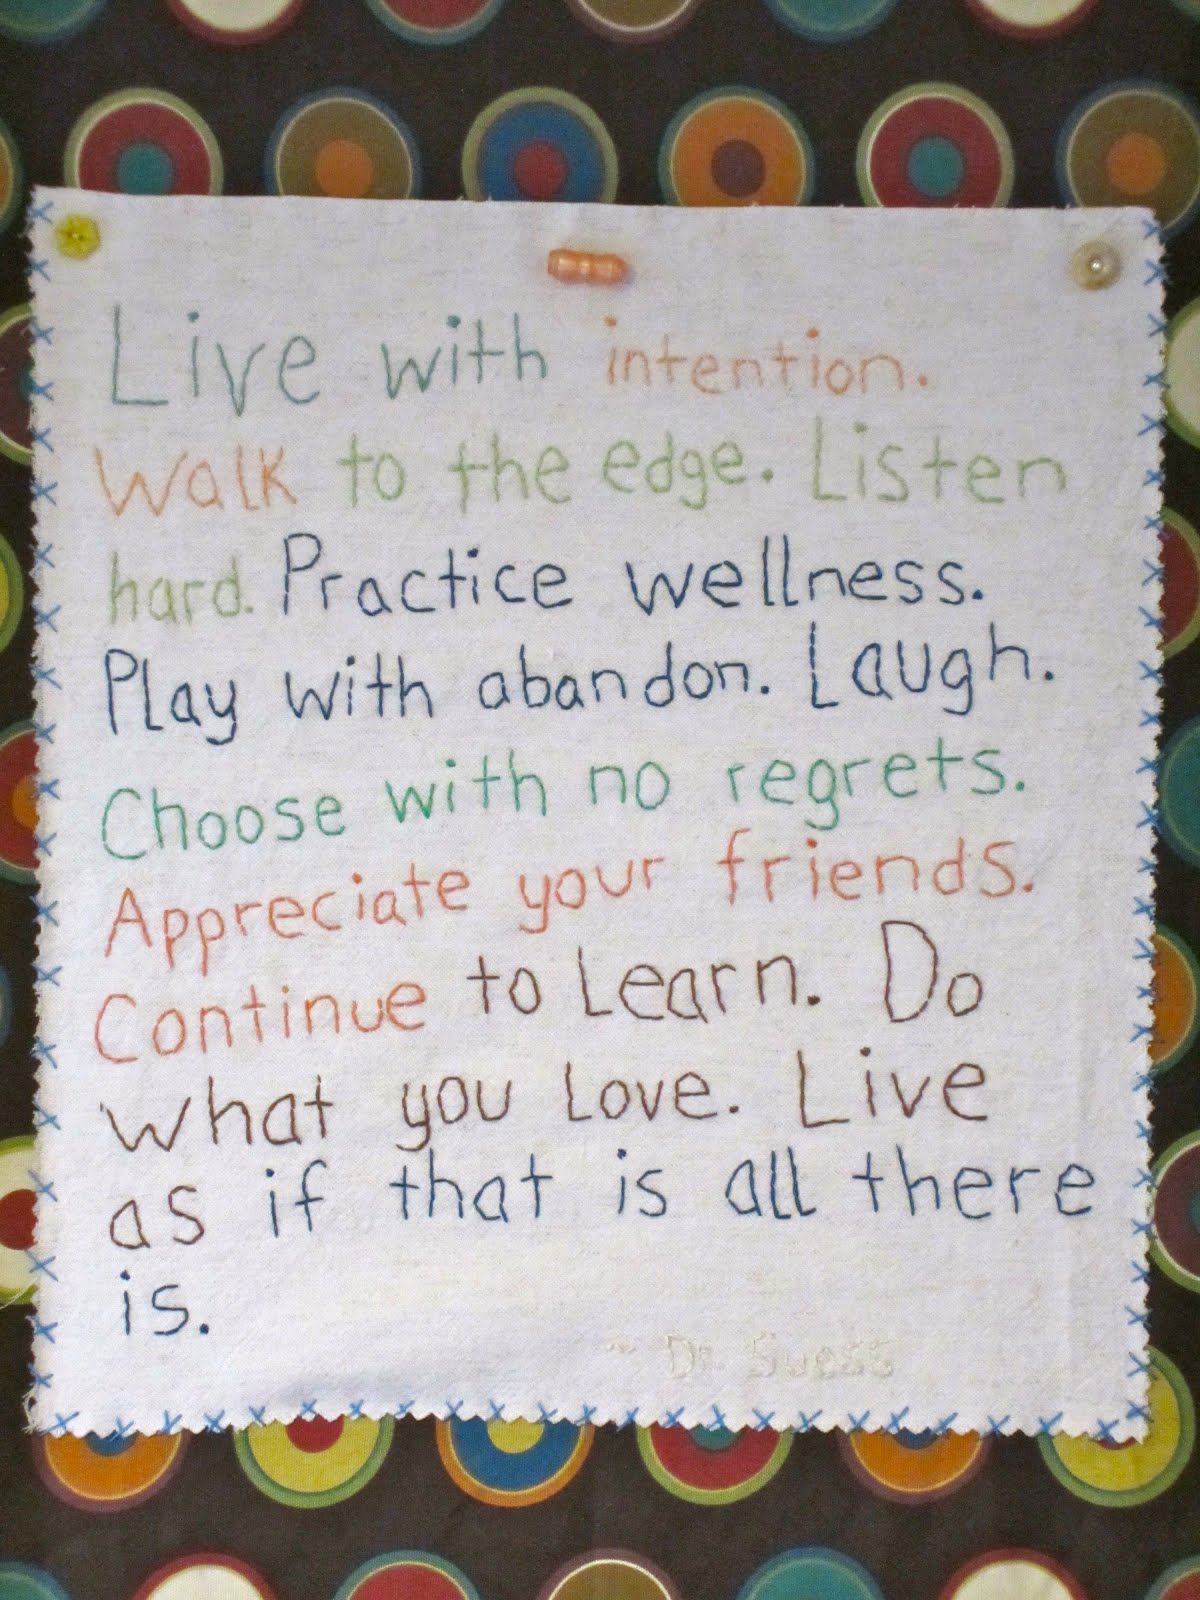 Live with intention.
Walk to the edge. Listen
hard. Practice wellness.
Play with abandon. Laugh.
Choose with no regrets.
Appreciate your friends.
Continue to Learn. Do
what you Love. Live
as if that is all there
is.
~ Dr. Suess